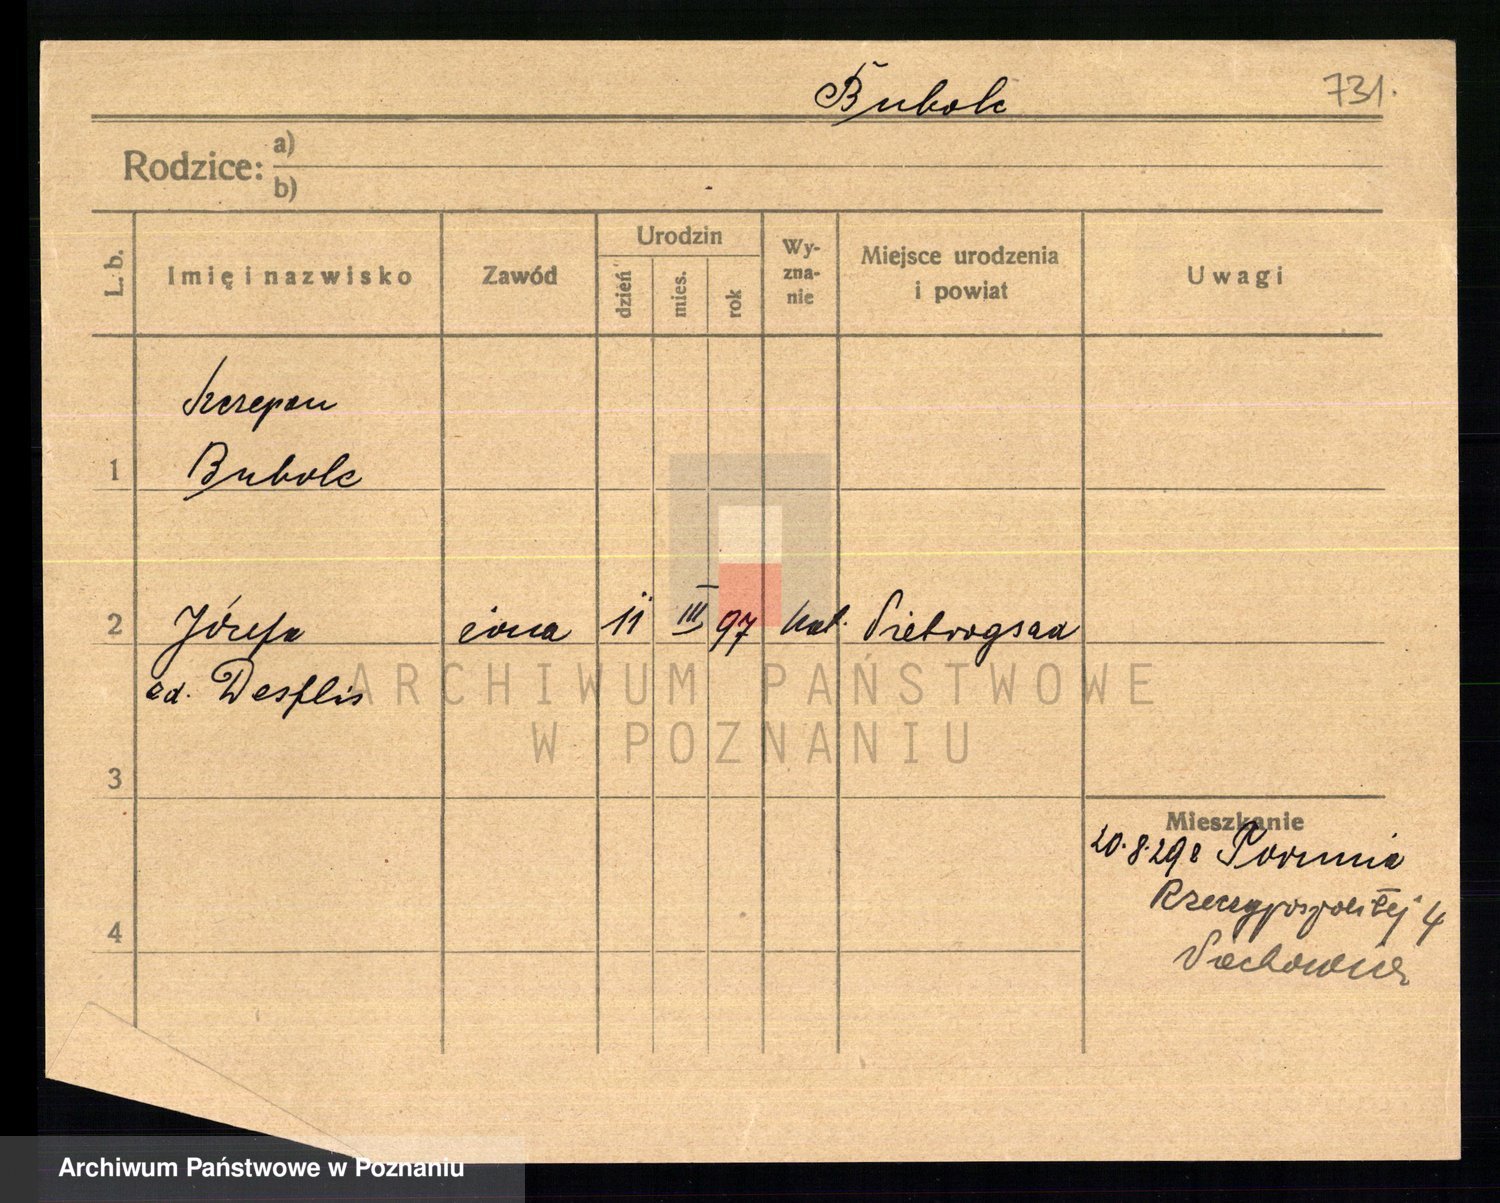 Bubolc 731.
Rodzice: a)
b)
L. b. Imię i nazwisko Zawód Urodzin dzień mies. rok Wy-zna-nie Miejsce urodzenia i powiat Uwagi
Szczepan
1 Bubolc
2 Józefa żona 11 III 97 kat. Pietrograd
ARCHIWUM PAŃSTWOWE
W POZNANIU
3
Mieszkanie
20.8.29 Poznnia
Rzeczypospolitej 4
4
Archiwum Państwowe w Poznaniu